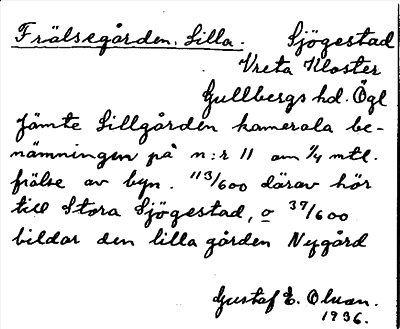 Frälsegården, Lilla. Sjögestad
Vreta Kloster
Gullbergs hd. Ögl
Jämte Lillgården kamerala be-
nämningen på n:r 11 om 1/4 mtl.
frälse av byn. 113/600 därav hör
till Stora Sjögestad, o 37/600
bildar den lilla gården Nygård
Gustaf E. Olsson.
1936.